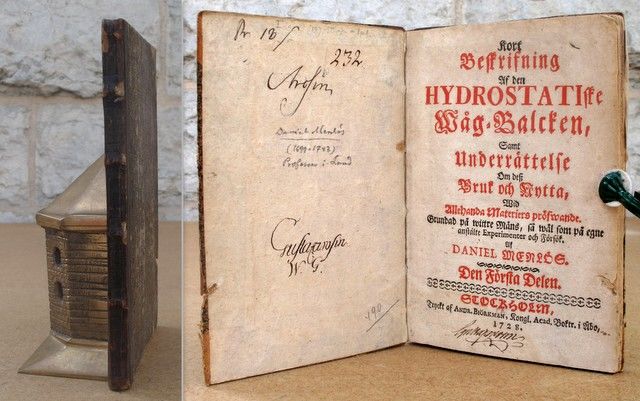 Pr 18
232
Daniel Menlös
(1699-1743)
Professor i Lund
W. G.
190
Kort
Beskrifning
Af den
HYDROSTATIske
Wåg-Balcken,
Samt
Underrättelse
Om deß
Bruk och Nytta,
Wid
Allehanda Materiers pröfwande.
Grundad på wittre Mäns, så wäl som på egne
anstälte Experimenter och Försök.
Af
DANIEL MENLÖS.
Den Första Delen.
STOCKHOLM,
Tryckt af ANDR. BIÖRKMAN, Kongl. Acad. Boktr. i Åbo,
1728.